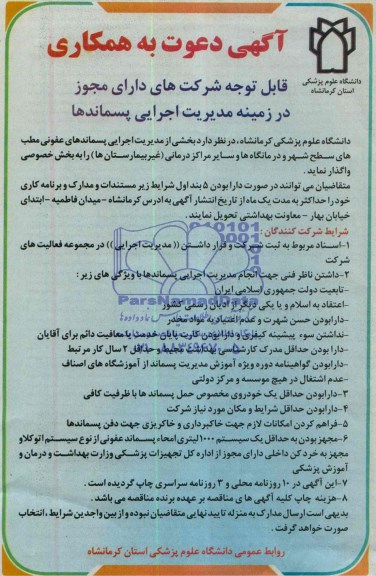 آگهی دعوت به همکاری
دانشگاه علوم پزشکی
استان کرمانشاه
قابل توجه شرکت های دارای مجوز
در زمینه مدیریت اجرایی پسماندها
دانشگاه علوم پزشکی کرمانشاه، در نظر دارد بخشی از مدیریت اجرایی پسماندهای عفونی مطب
های سطح شهر و درمانگاه ها و سایر مراکز درمانی (غیر بیمارستان ها) را به بخش خصوصی
واگذار نماید.
متقاضیان می توانند در صورت دارا بودن ۵ بند اول شرایط زیر مستندات و مدارک و برنامه کاری
خود را حداکثر به مدت یک ماه از تاریخ انتشار آگهی به آدرس کرمانشاه - میدان فاطمیه - ابتدای
خیابان بهار - معاونت بهداشتی تحویل نمایند.
شرایط شرکت کنندگان:
۱-اسناد مربوط به ثبت شرکت و قرار داشتن ((مدیریت اجرایی)) در مجموعه فعالیت های
شرکت
۲-داشتن ناظر فنی جهت انجام مدیریت اجرایی پسماندها با ویژگی های زیر:
-تابعیت دولت جمهوری اسلامی ایران
-اعتقاد به اسلام و یا یکی دیگر از ادیان رسمی کشور
-دارا بودن حسن شهرت و عدم اعتیاد به مواد مخدر
-نداشتن سوء پیشینه کیفری و دارا بودن کارت پایان خدمت یا معافیت دائم برای آقایان
-دارا بودن حداقل مدرک کارشناسی بهداشت محیط و حداقل ۲ سال کار مرتبط
-دارا بودن گواهینامه دوره ویژه آموزش مدیریت پسماند از آموزشگاه های اصناف
-عدم اشتغال در هیچ موسسه و مرکز دولتی
۳-دارا بودن حداقل یک خودروی مخصوص حمل پسماند ها با ظرفیت کافی
۴-دارا بودن حداقل شرایط و مکان مورد نیاز شرکت
۵-فراهم کردن امکانات لازم جهت خاکبرداری و خاکریزی جهت دفن پسماندها
۶-مجهز بودن به حداقل یک سیستم ۱۰۰۰ لیتری امحاء پسماند عفونی از نوع سیستم اتوکلاو
مجهز به خرد کن داخلی دارای مجوز از اداره کل تجهیزات پزشکی وزارت بهداشت و درمان و
آموزش پزشکی
۷-این آگهی در ۱۰ روزنامه محلی و ۳ روزنامه سراسری چاپ گردیده است.
۸-هزینه چاپ کلیه آگهی های مناقصه بر عهده برنده مناقصه می باشد.
بدیهی است ارسال مدارک به منزله تایید نهایی متقاضیان نبوده و از بین واجدین شرایط، انتخاب
صورت خواهد گرفت.
روابط عمومی دانشگاه علوم پزشکی استان کرمانشاه
ParsNamadData